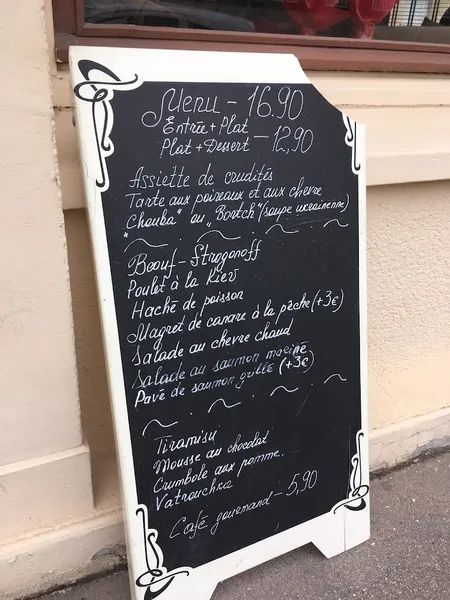 Menu - 16.90
Entrée + Plat
Plat + Dessert - 12,90
Assiette de crudités
Tarte aux poireaux et aux chevre
"Chouba" ou "Bortch" (soupe ukrainenne)
Bœuf - Stroganoff
Poulet à la Kiev
Haché de poisson
Magret de canare à la pêche (+3€)
Salade au chevre chaud
Salade au saumon mariné
Pavé de saumon grillé (+3€)
Tiramisu
Mousse au chocolat
Crumbole aux pomme.
Vatrouchka
Café gourmand - 5,90